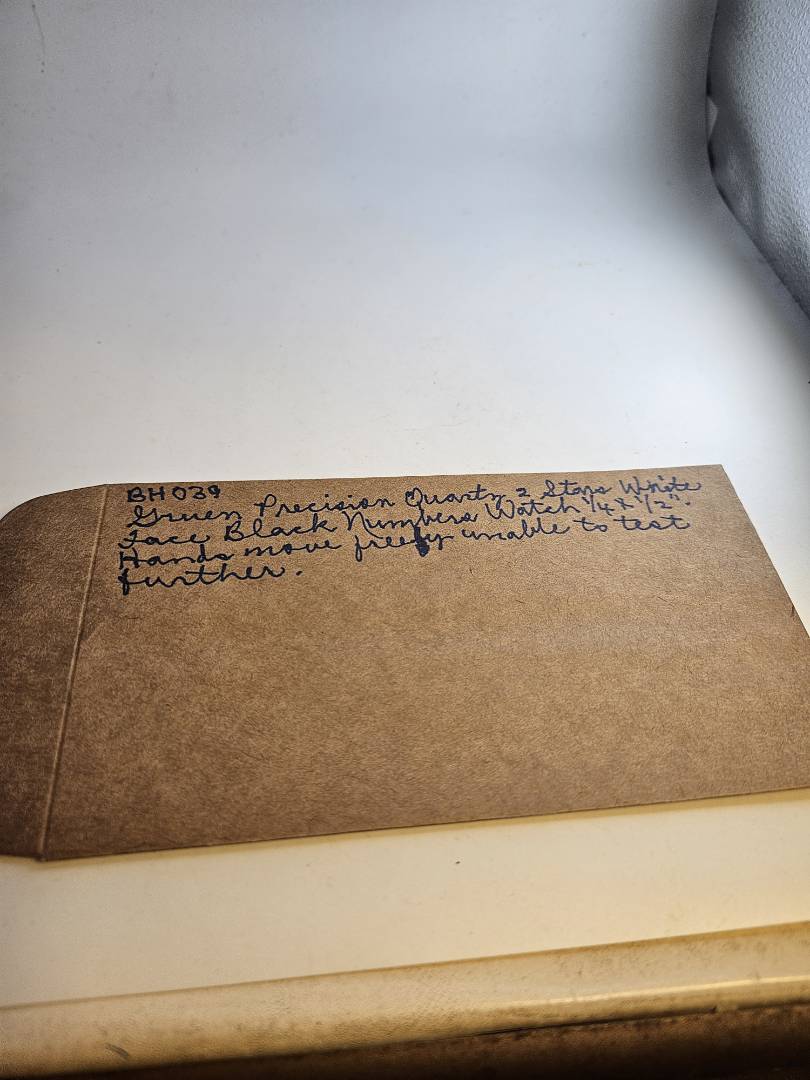 BH039
Gruen Precision Quartz 2 Stars White
Face Black Numbers Watch 1/4 x 1/2".
Hands move freely unable to test
further.